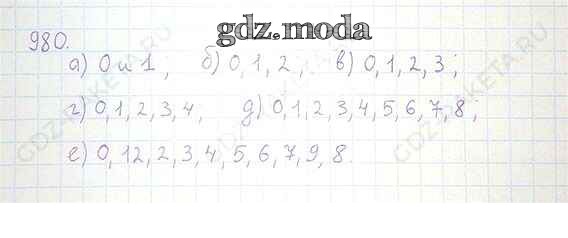 gdz.moda
980.
а) 0 и 1; б) 0, 1, 2; в) 0, 1, 2, 3;
г) 0, 1, 2, 3, 4; д) 0, 1, 2, 3, 4, 5, 6, 7, 8;
е) 0, 12, 2, 3, 4, 5, 6, 7, 9, 8.
GDZ-RAKETA.RU
GDZ-RAKETA.RU
GDZ-RAKETA.RU